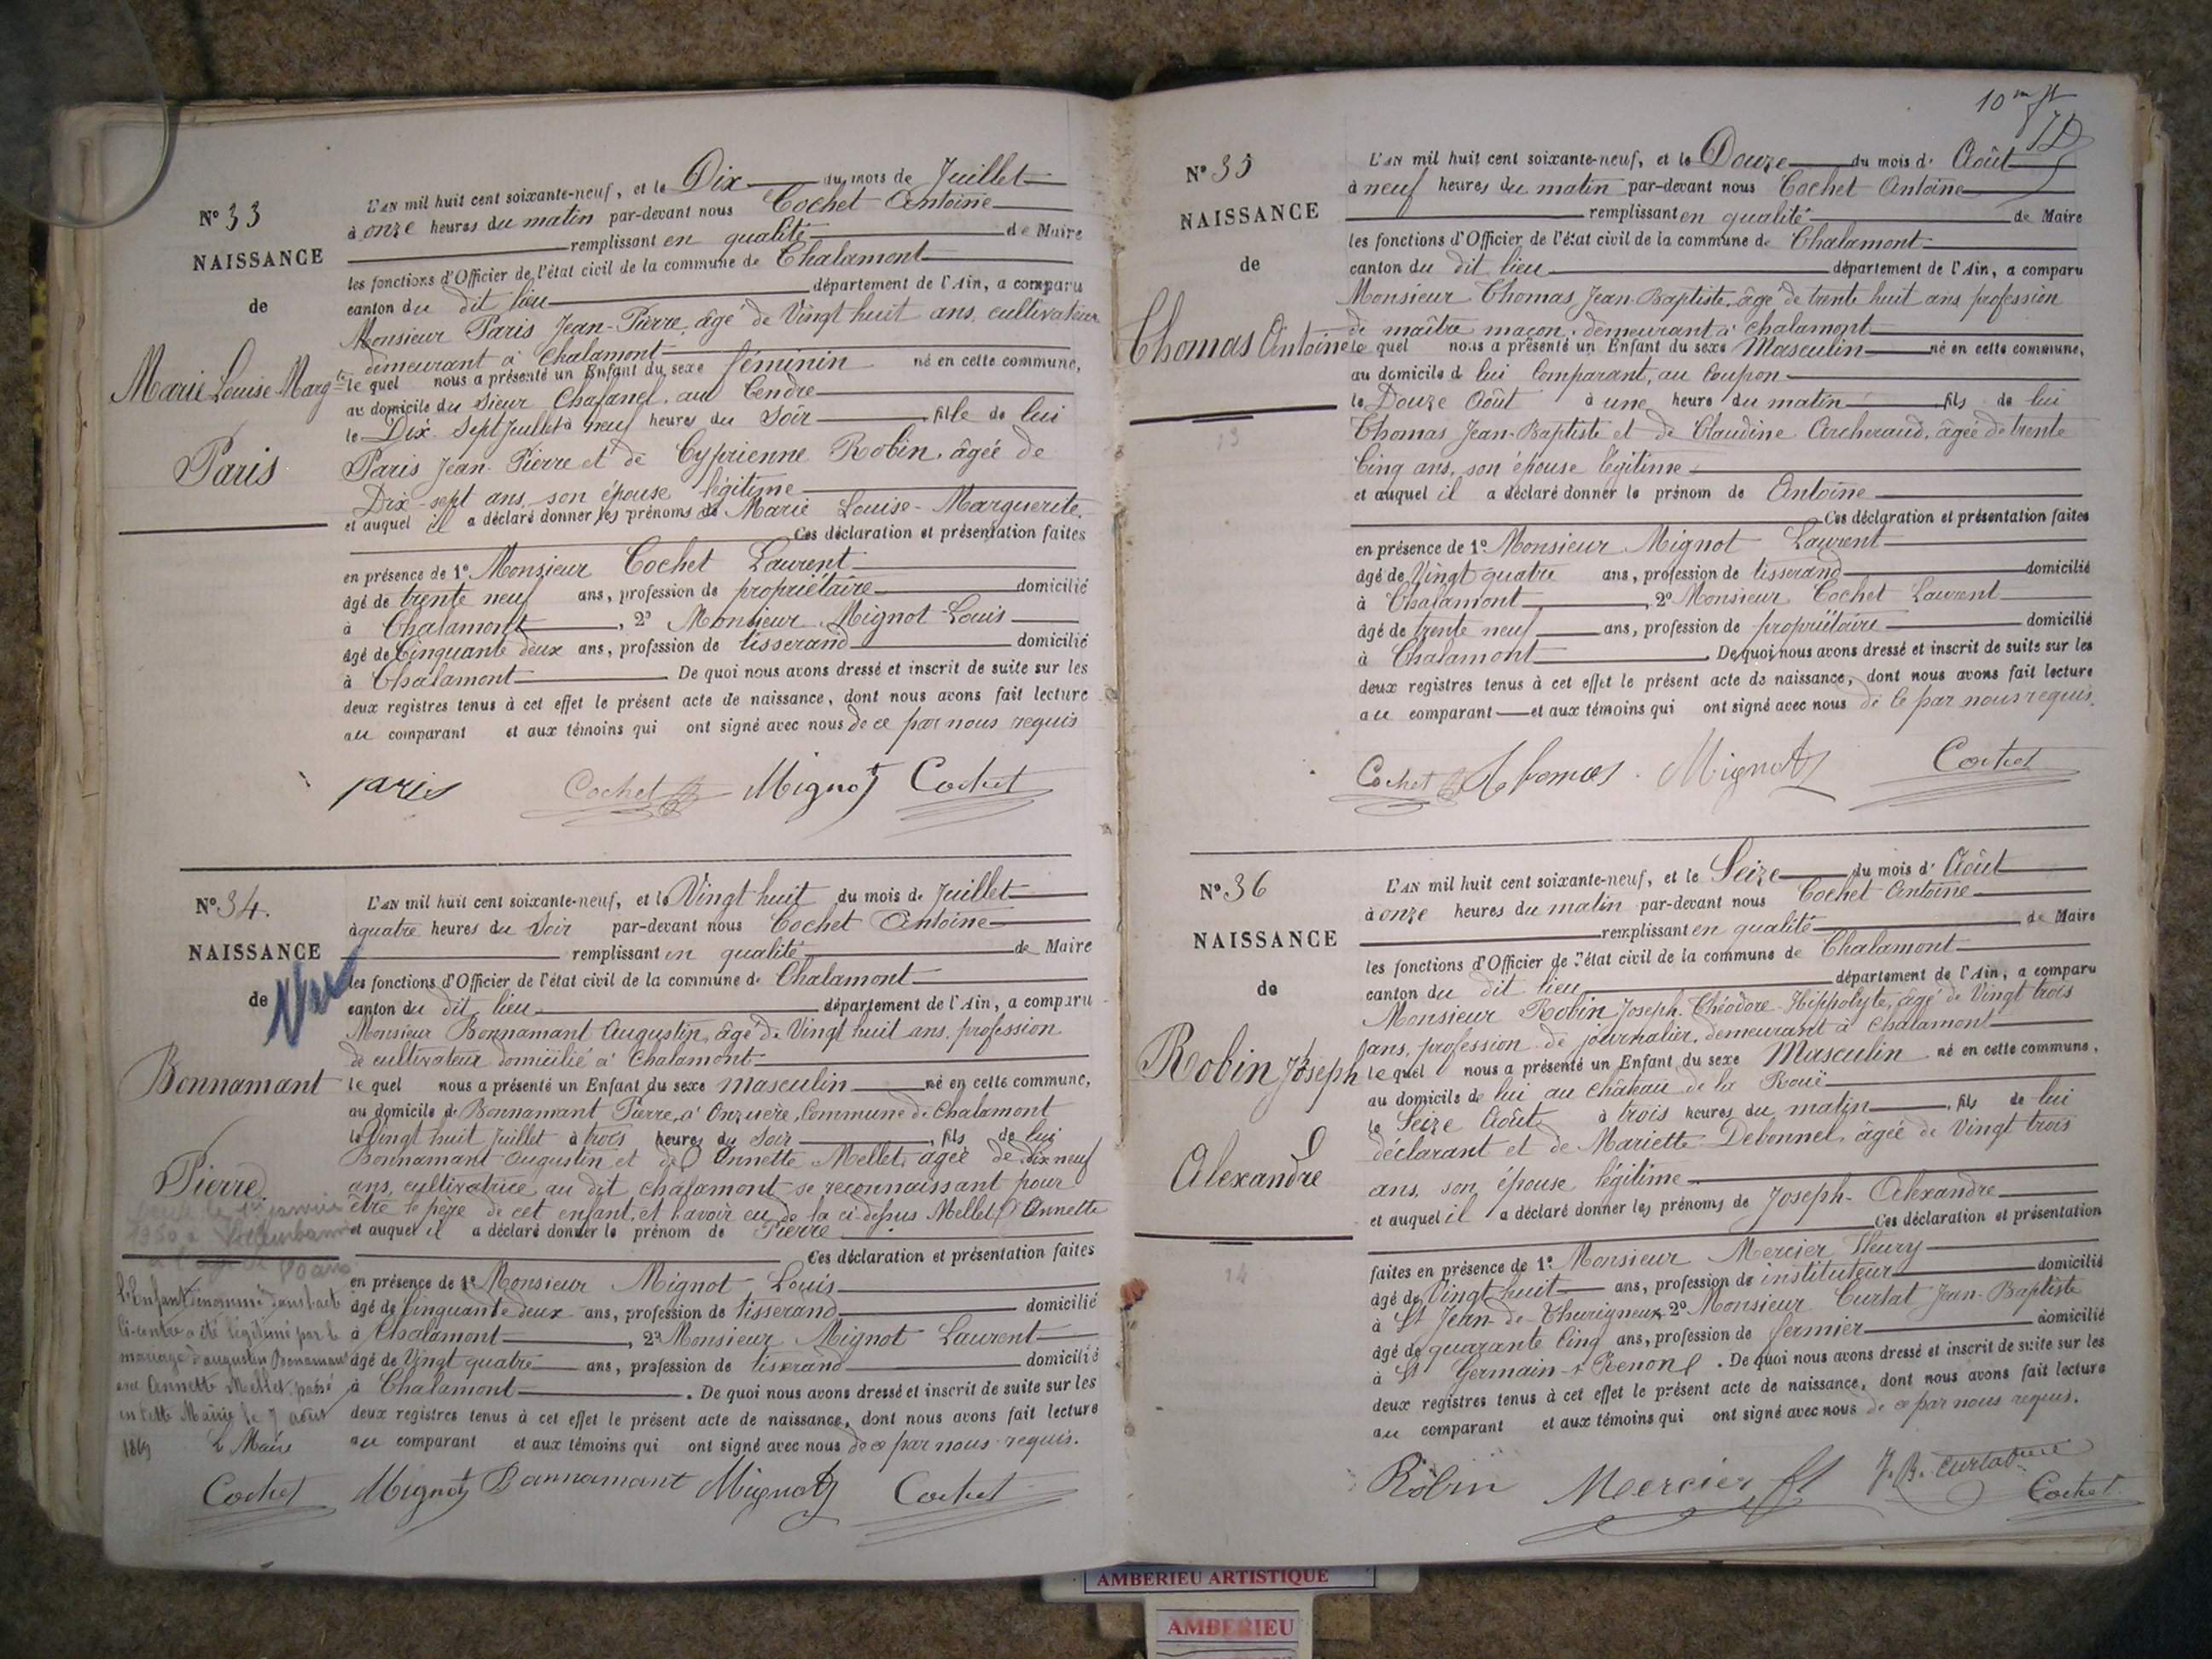 N° 33
NAISSANCE
de
Marie Louise Marg.te
Paris
L'AN mil huit cent soixante-neuf, et le Dix du mois de Juillet
à onze heures du matin par-devant nous Cochet Antoine
remplissant en qualité de Maire
les fonctions d'Officier de l'état civil de la commune de Chalamont
canton du dit lieu département de l'Ain, a comparu
Monsieur Paris Jean-Pierre, âgé de Vingt huit ans, cultivateur
demeurant à Chalamont
le quel nous a présenté un Enfant du sexe féminin né en cette commune,
au domicile du Sieur Chafanel, au Cendre
le Dix Sept Juillet à neuf heures du Soir fille de lui
Paris Jean-Pierre et de Cyprienne Robin, âgée de
Dix-sept ans, son épouse légitime
et auquel il a déclaré donner les prénoms de Marie Louise-Marguerite.
Ces déclaration et présentation faites
en présence de 1° Monsieur Cochet Laurent
âgé de trente neuf ans, profession de propriétaire domicilié
à Chalamont, 2° Monsieur Mignot Louis
âgé de Cinquante deux ans, profession de tisserand domicilié
à Chalamont De quoi nous avons dressé et inscrit de suite sur les
deux registres tenus à cet effet le présent acte de naissance, dont nous avons fait lecture
au comparant et aux témoins qui ont signé avec nous de ce par nous requis
paris Cochet Mignot Cochet
N° 34.
NAISSANCE
de
Bonnamant
Pierre
1950 à
80 ans
L'Enfant dénommé dans l'acte
Ci-contre a été légitimé par le
mariage d'augustin Bonnamant
avec Annette Mellet, passé
en cette Mairie le 7 août
1869 Le Maire
Cochet
L'AN mil huit cent soixante-neuf, et le Vingt huit du mois de Juillet
à quatre heures du Soir par-devant nous Cochet Antoine
remplissant en qualité de Maire
les fonctions d'Officier de l'état civil de la commune de Chalamont
canton du dit lieu département de l'Ain, a comparu
Monsieur Bonnamant Augustin, âgé de Vingt huit ans, profession
de cultivateur domicilié à Chalamont
le quel nous a présenté un Enfant du sexe masculin né en cette commune,
au domicile de Bonnamant Pierre, à Onzuère, Commune de Chalamont
le Vingt huit Juillet à trois heures du Soir, fils de lui
Bonnamant Augustin et de Annette Mellet, âgée de dix neuf
ans, cultivatrice au dit chalamont se reconnaissant pour
être le père de cet enfant, et l'avoir eu de la ci-dessus Mellet Annette
et auquel il a déclaré donner le prénom de Pierre
Ces déclaration et présentation faites
en présence de 1° Monsieur Mignot Louis
âgé de Cinquante deux ans, profession de tisserand domicilié
à Chalamont, 2° Monsieur Mignot Laurent
âgé de Vingt quatre ans, profession de tisserand domicilié
à Chalamont. De quoi nous avons dressé et inscrit de suite sur les
deux registres tenus à cet effet le présent acte de naissance, dont nous avons fait lecture
au comparant et aux témoins qui ont signé avec nous de ce par nous requis.
Mignot Bonnamant Mignot Cochet
10
N° 35
NAISSANCE
de
Thomas Antoine
13
L'AN mil huit cent soixante-neuf, et le Douze du mois d' Août
à neuf heures du matin par-devant nous Cochet Antoine
remplissant en qualité de Maire
les fonctions d'Officier de l'état civil de la commune de Chalamont
canton du dit lieu département de l'Ain, a comparu
Monsieur Thomas Jean-Baptiste, âgé de trente huit ans profession
de maître maçon, demeurant à Chalamont
le quel nous a présenté un Enfant du sexe Masculin né en cette commune,
au domicile d lui Comparant, au Coupon
le Douze Août à une heure du matin fils de lui
Thomas Jean-Baptiste et de Claudine Archeraud, âgée de trente
Cinq ans, son épouse légitime
et auquel il a déclaré donner le prénom de Antoine
Ces déclaration et présentation faites
en présence de 1° Monsieur Mignot Laurent
âgé de Vingt quatre ans, profession de tisserand domicilié
à Chalamont, 2° Monsieur Cochet Laurent
âgé de trente neuf ans, profession de propriétaire domicilié
à Chalamont. De quoi nous avons dressé et inscrit de suite sur les
deux registres tenus à cet effet le présent acte de naissance, dont nous avons fait lecture
au comparant et aux témoins qui ont signé avec nous de ce par nous requis.
Cochet Thomas Mignot Cochet
N° 36
NAISSANCE
de
Robin Joseph
Alexandre
14
L'AN mil huit cent soixante-neuf, et le Seize du mois d' Août
à onze heures du matin par-devant nous Cochet Antoine
remplissant en qualité de Maire
les fonctions d'Officier de l'état civil de la commune de Chalamont
canton du dit lieu département de l'Ain, a comparu
Monsieur Robin Joseph-Théodore-Hippolyte, âgé de Vingt trois
ans, profession de journalier, demeurant à Chalamont
le quel nous a présenté un Enfant du sexe Masculin né en cette commune,
au domicile de lui au château de la Rouë
le Seize Août à trois heures du matin, fils de lui
déclarant et de Mariette Debonnel, âgée de Vingt trois
ans, son épouse légitime
et auquel il a déclaré donner les prénoms de Joseph-Alexandre
Ces déclaration et présentation
faites en présence de 1° Monsieur Mercier Fleury
âgé de Vingt huit ans, profession de instituteur domicilié
à St Jean-de-Thurigneux 2° Monsieur Curtat Jean-Baptiste
âgé de quarante Cinq ans, profession de fermier domicilié
à St Germain-s-Renon. De quoi nous avons dressé et inscrit de suite sur les
deux registres tenus à cet effet le présent acte de naissance, dont nous avons fait lecture
au comparant et aux témoins qui ont signé avec nous de ce par nous requis.
Robin Mercier ff J. B. Curtat
Cochet
AMBERIEU ARTISTIQUE
AMBERIEU